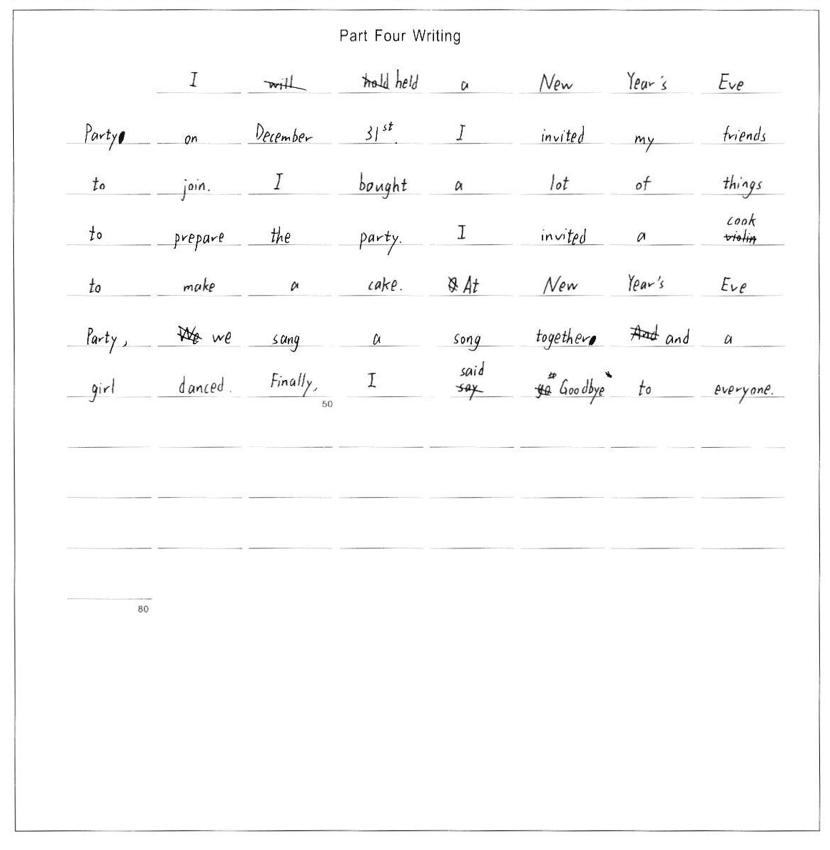 Part Four Writing
I will hold held a New Year's Eve
Party on December 31st. I invited my friends
to join. I bought a lot of things
to prepare the party. I invited a violin cook
to make a cake. At New Year's Eve
Party, We we sang a song together And and a
girl danced. Finally, I say said "Goodbye" to everyone.
50
80